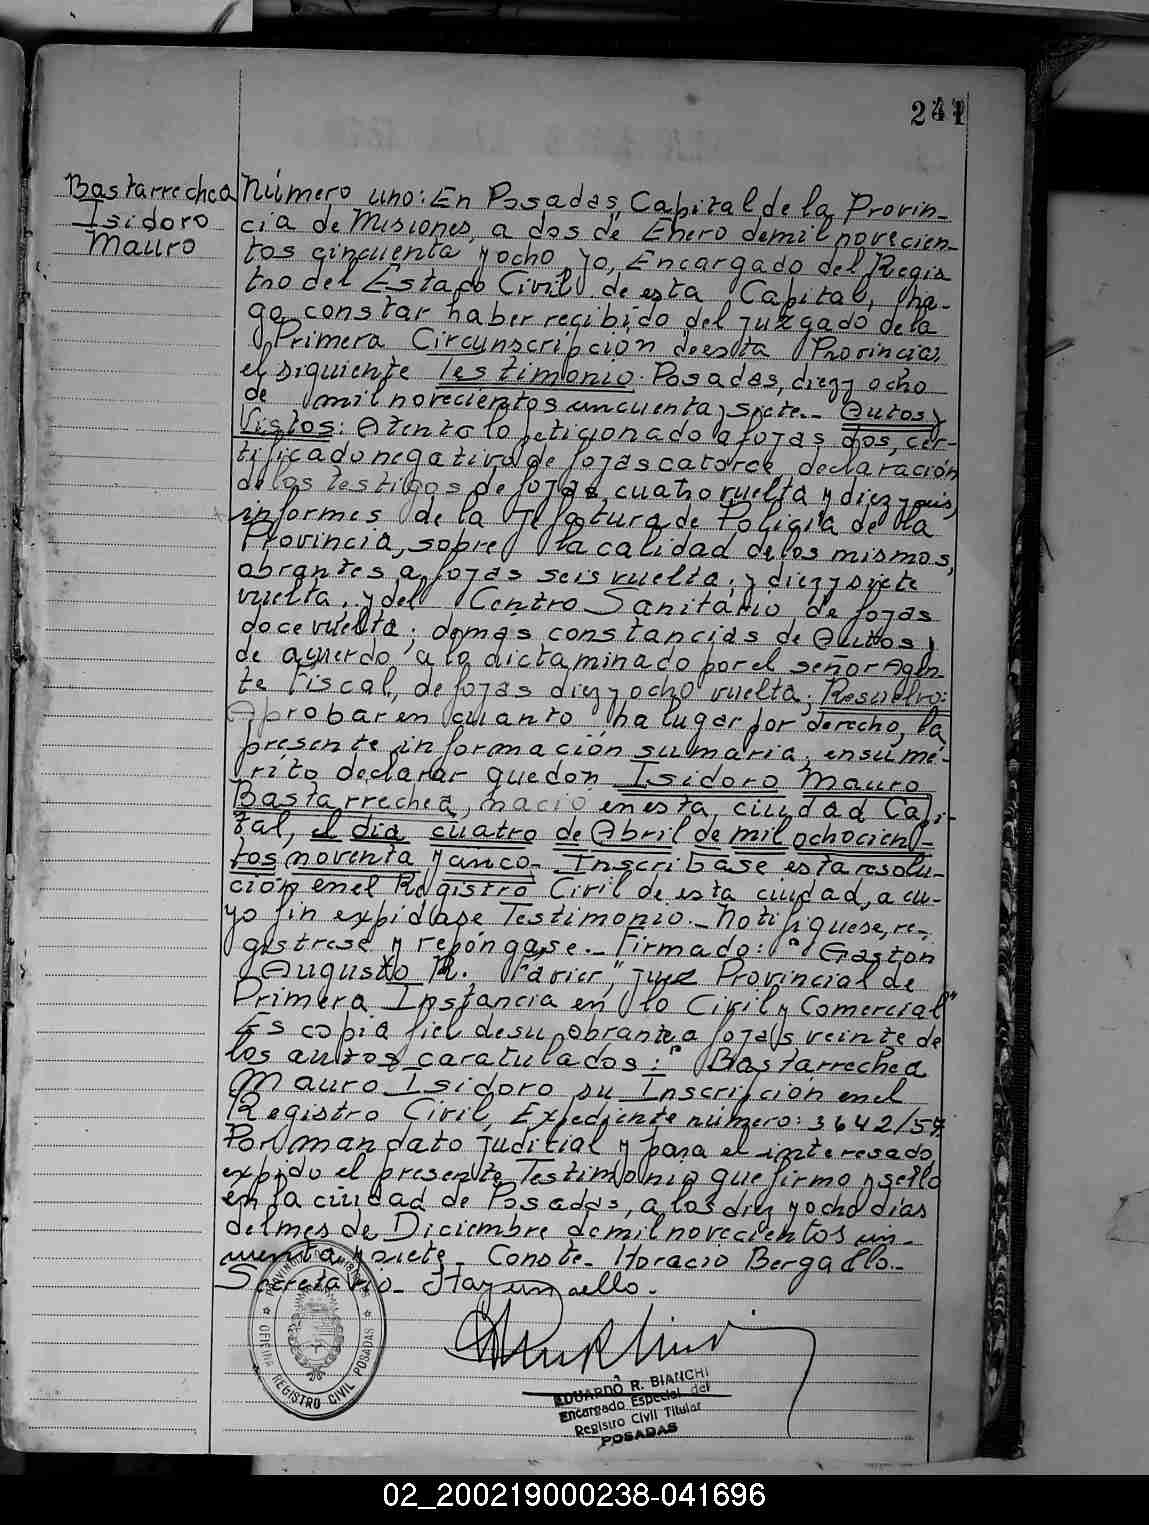 241
Bastarrechea
Isidoro
Mauro
Número uno: En Posadas, Capital de la Provin-
cia de Misiones, a dos de Enero de mil novecien-
tos cincuenta y ocho yo, Encargado del Regis
tro del Estado Civil de esta Capital, ha-
go constar haber recibido del juzgado de la
Primera Circunscripción de esta Provincia,
el siguiente Testimonio. Posadas, diez y ocho
de mil novecientos cincuenta y siete.- Autos y
Vistos: Atento lo peticionado a fojas dos, cer-
tificado negativo de fojas catorce, declaración
de los testigos de fojas cuatro vuelta y diez y seis,
informes de la Jefatura de Policia de la
Provincia, sobre la calidad de los mismos,
obrantes a fojas seis vuelta, y diez y siete
vuelta, y del Centro Sanitario de fojas
doce vuelta; demás constancias de Autos,
de acuerdo a lo dictaminado por el señor Agen-
te Fiscal, de fojas diez y ocho vuelta; Resuelvo:
Aprobar en cuanto ha lugar por derecho, la
presente información sumaria, en su mé-
rito declarar que don Isidoro Mauro
Bastarrechea, nació en esta ciudad Capi-
tal, el dia cuatro de Abril de mil ochocien-
tos noventa y cinco. Inscribase esta resolu-
ción en el Registro Civil de esta ciudad, a cu-
yo fin expidase Testimonio.- Notifiquese, re-
gistrese y repóngase.- Firmado: "Gaston
Augusto R. " Juez Provincial de
Primera Instancia en lo Civil y Comercial"
Es copia fiel de su obrante a fojas veinte de
los autos caratulados: "Bastarrechea
Mauro Isidoro su Inscripción en el
Registro Civil, Expediente número: 3642/57
Por mandato judicial y para el interesado
expido el presente Testimonio que firmo y sello
en la ciudad de Posadas, a los diez y ocho días
del mes de Diciembre de mil novecientos cin-
cuenta y siete.- Conste.- Horacio Bergallo.-
Secretario.- Hay un sello.-
PROVINCIA DE MISIONES
OFICINA REGISTRO CIVIL POSADAS
EDUARDO R. BIANCHI
Encargado Especial del
Registro Civil Titular
POSADAS
02_200219000238-041696